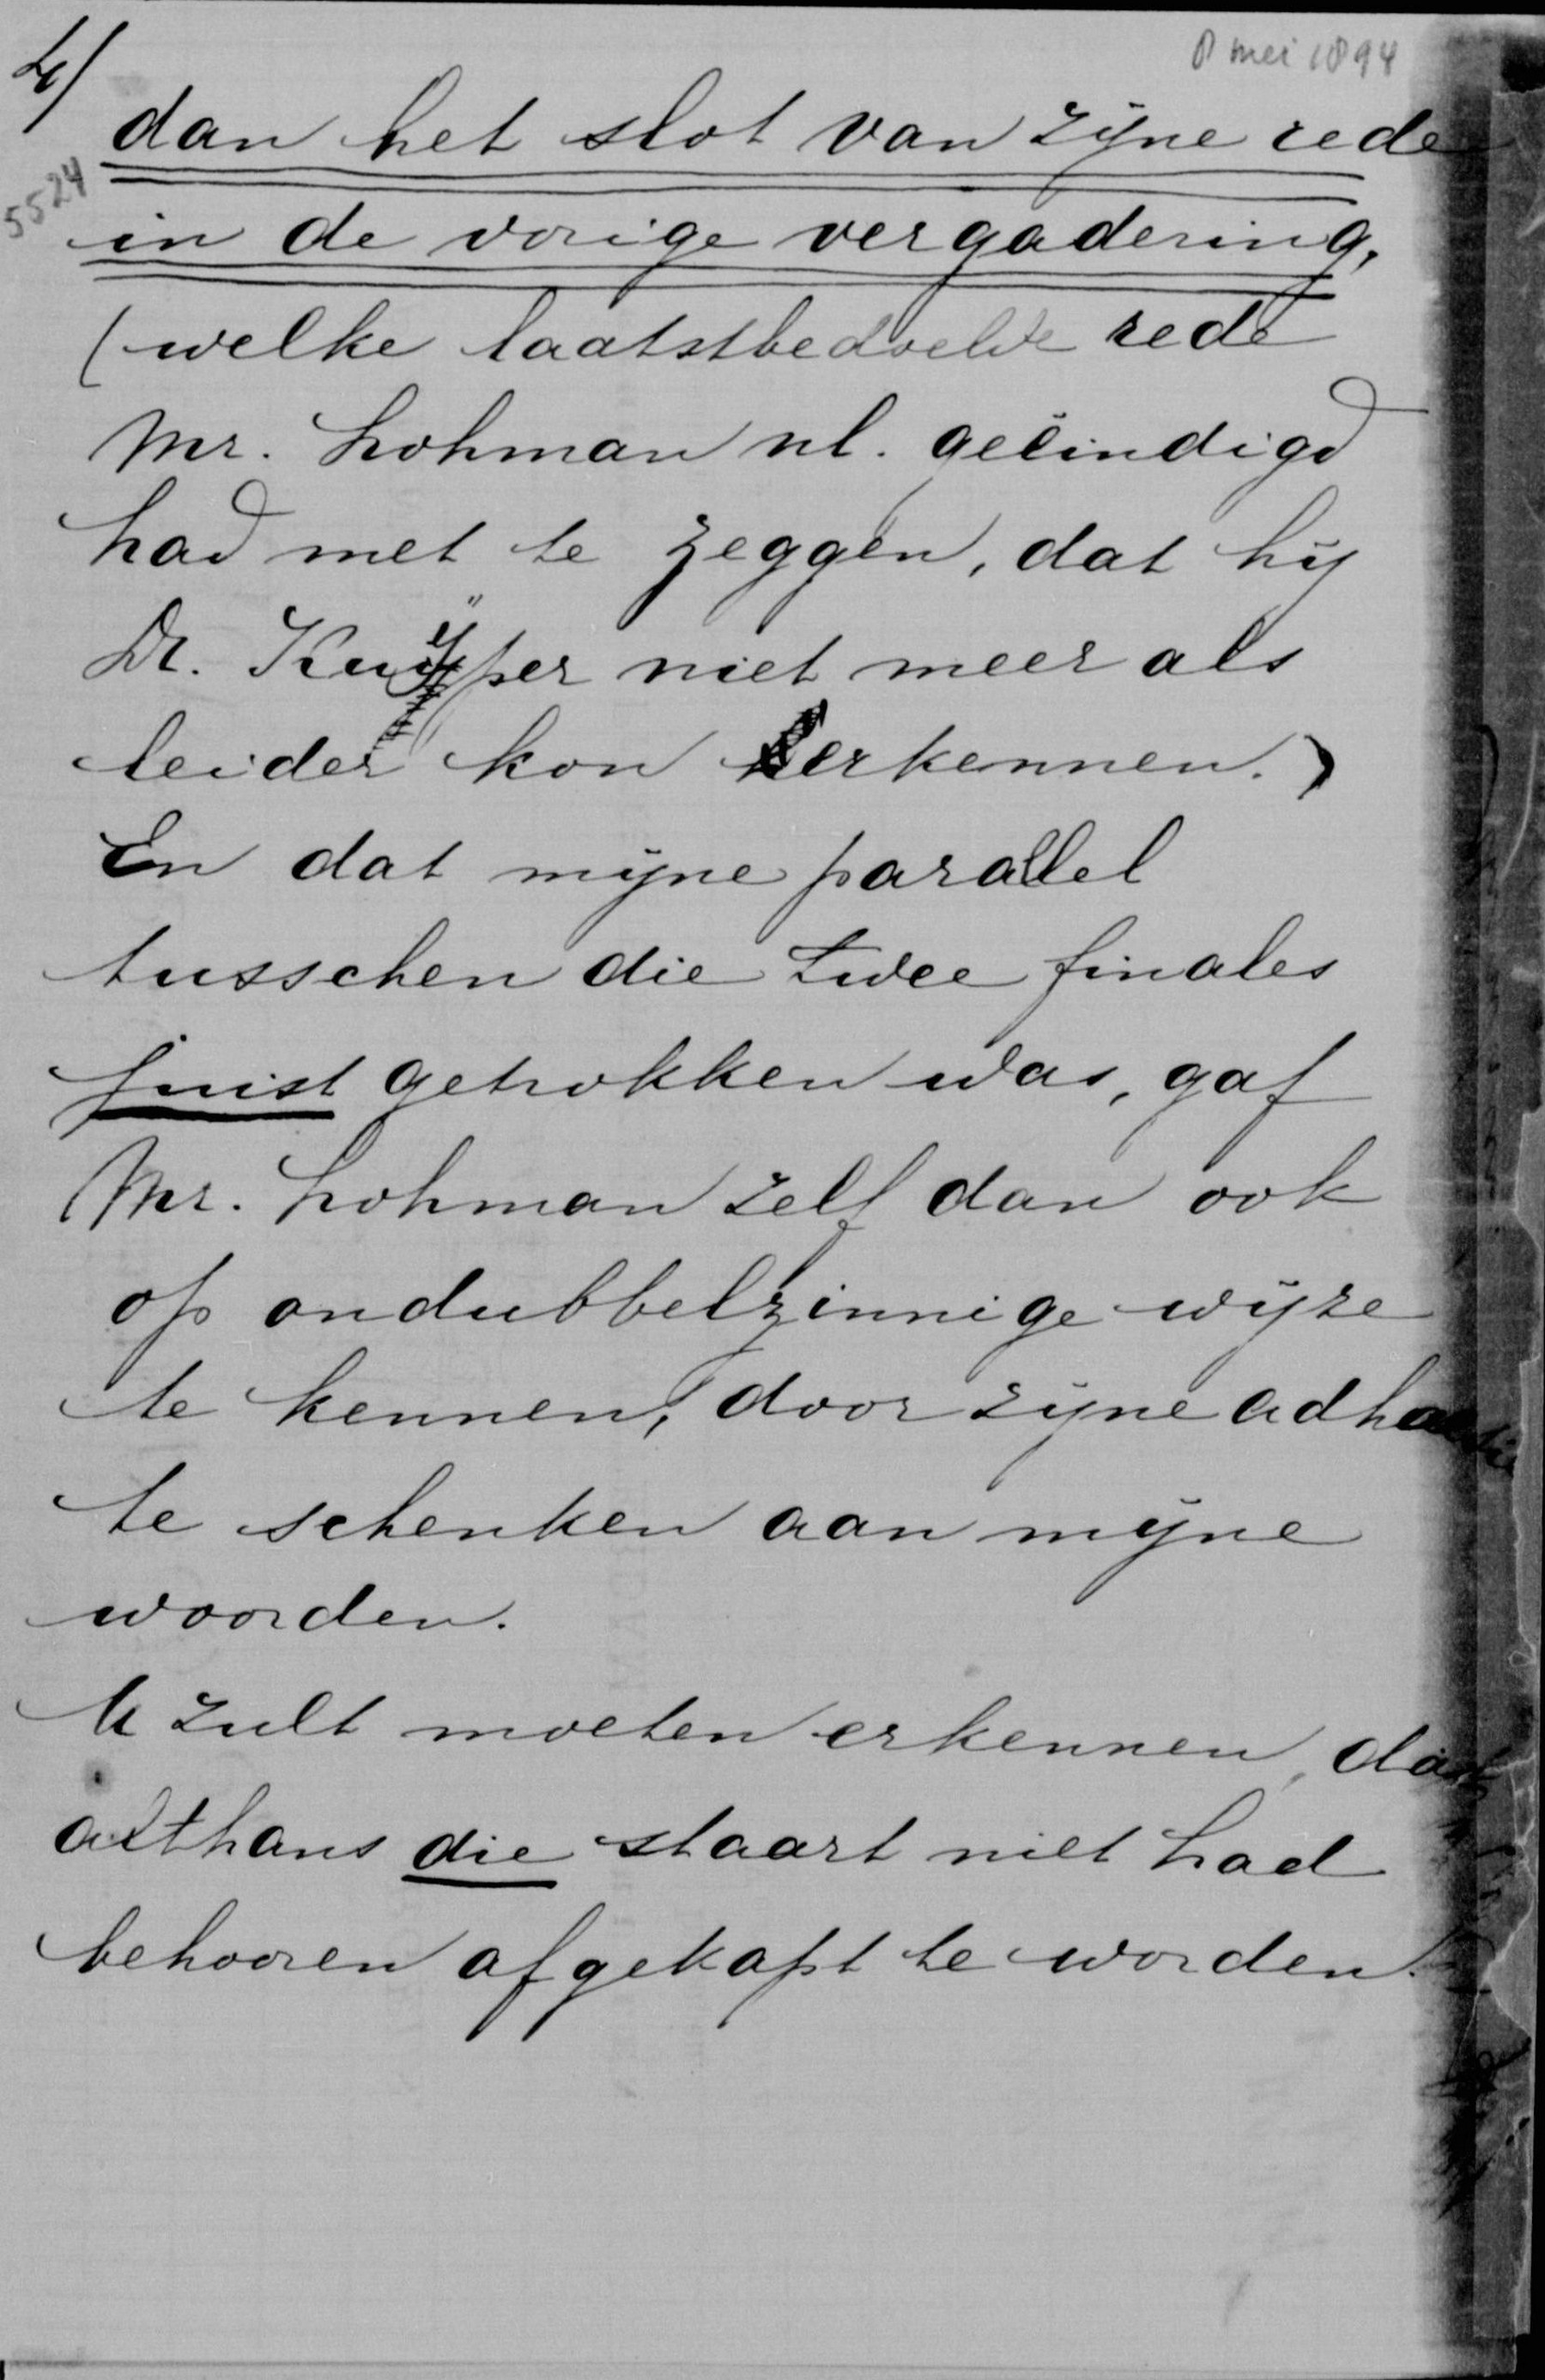 4/
8 mei 1894
5524
dan het slot van zijne rede
in de vorige vergadering,
(welke laatstbedoelde rede
Mr. Lohman nl. geëindigd
had met te zeggen, dat hij
Dr. Kuyper niet meer als
leider kon erkennen.)
En dat mijne parallel
tusschen die twee finales
juist getrokken was, gaf
Mr. Lohman zelf dan ook
op ondubbelzinnige wijze
te kennen, door zijne
te schenken aan mijne
woorden.
U zult moeten erkennen, dat
althans die staart niet had
behooren afgekapt te worden.